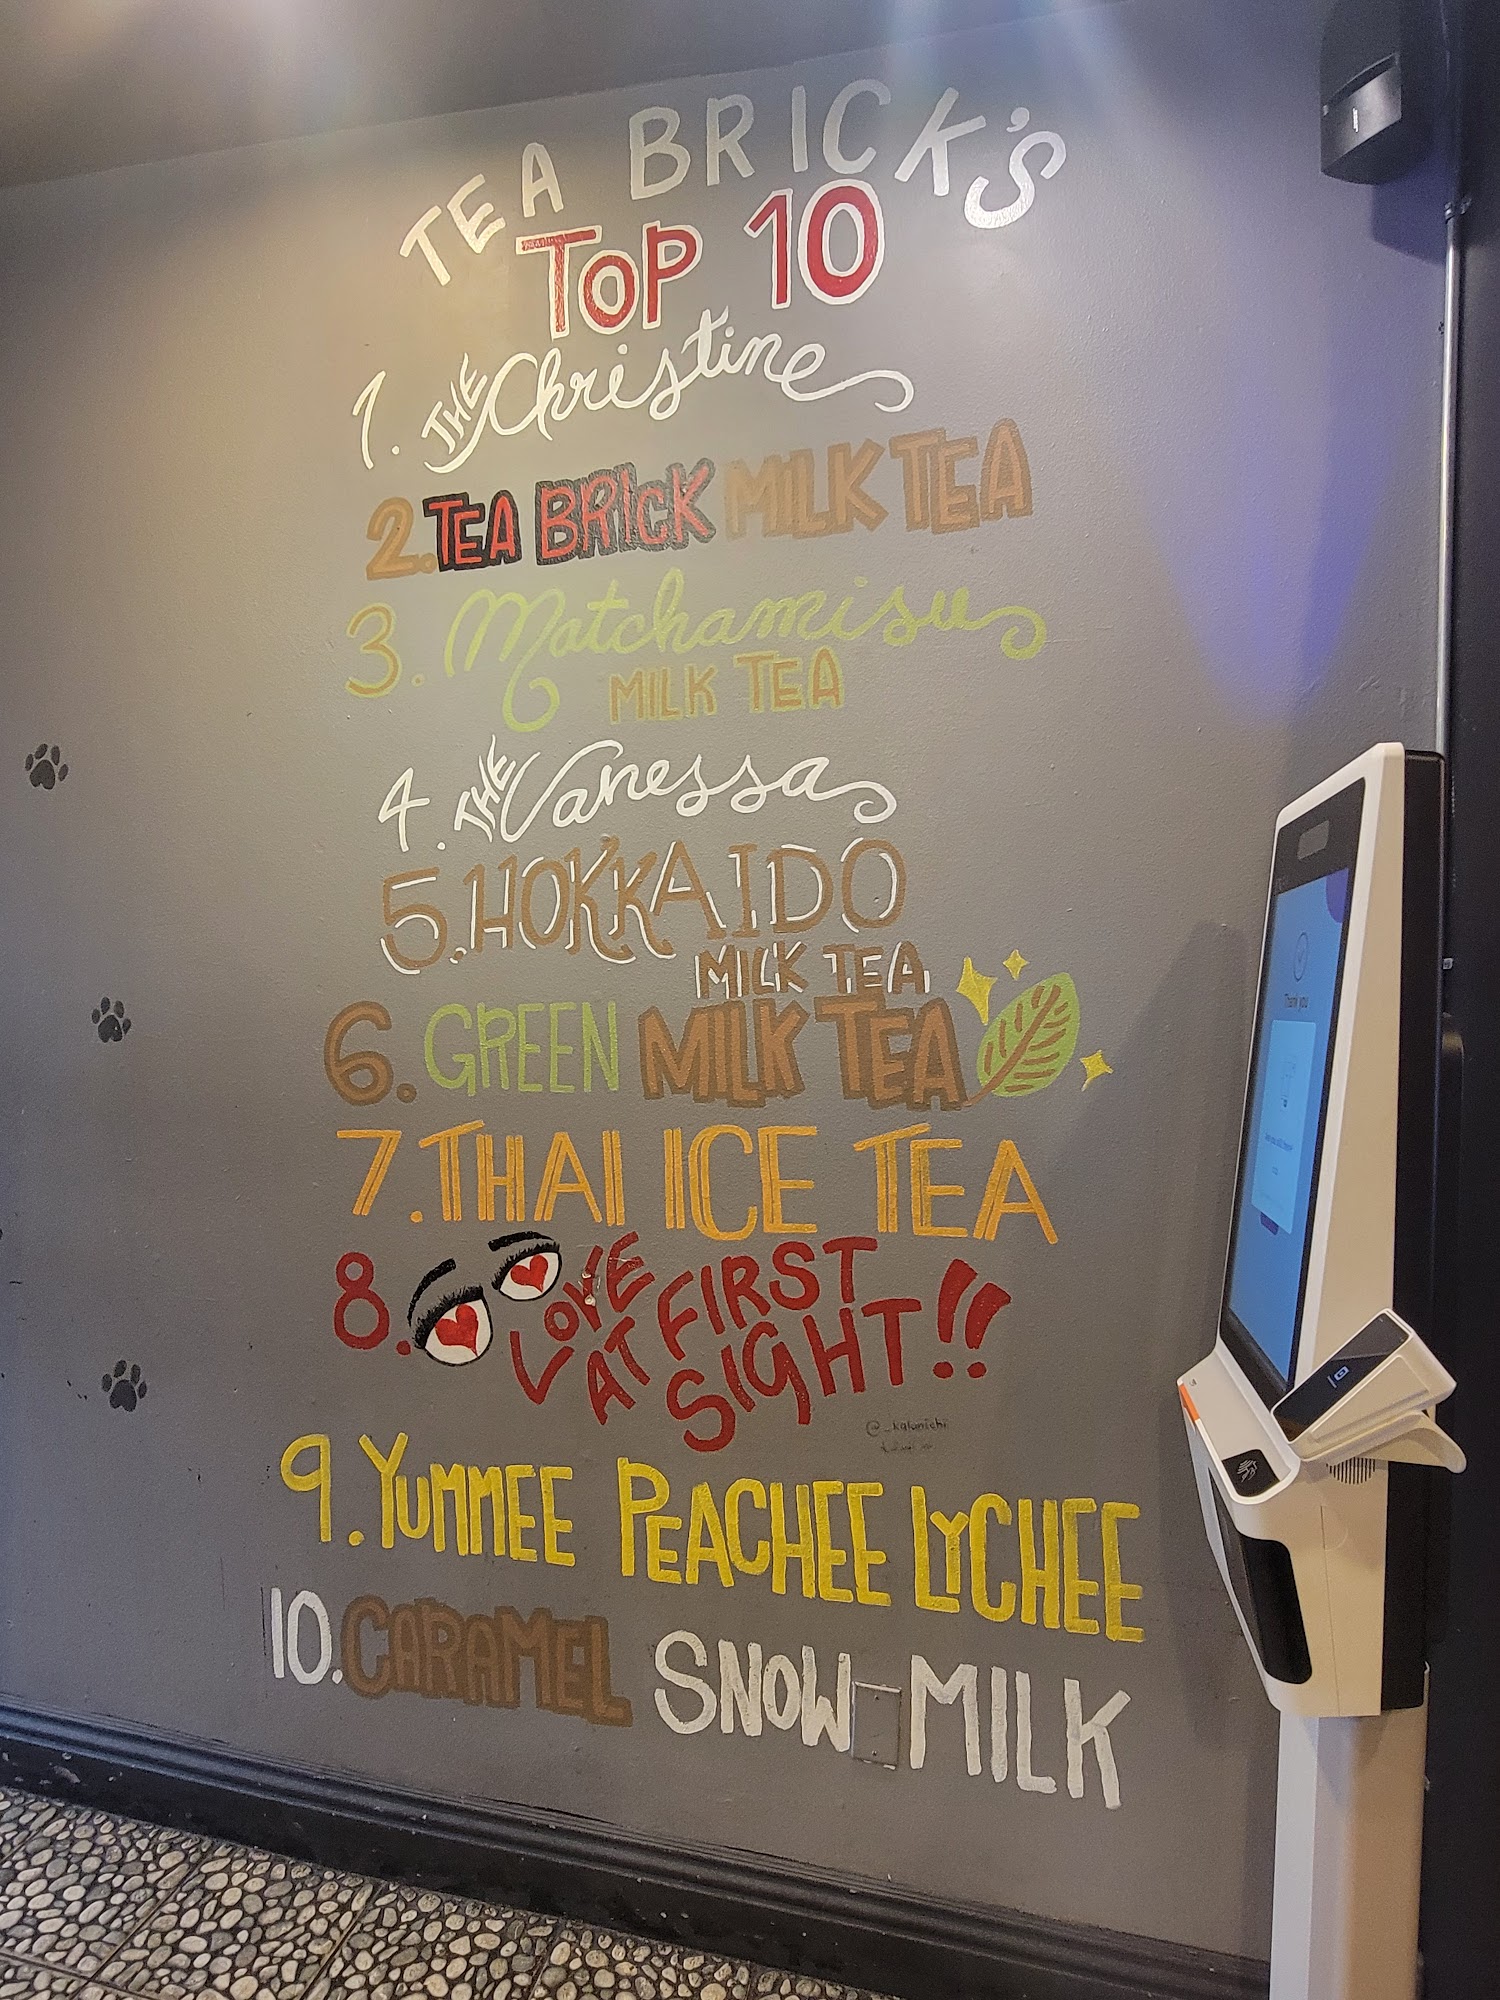 TEA BRICK'S
TOP 10
1. THE Christine
2. TEA BRICK MILK TEA
3. Matchamisu
MILK TEA
4. THE Vanessa
5. HOKKAIDO
MILK TEA
6. GREEN MILK TEA
7. THAI ICE TEA
8. LOVE
AT FIRST
SIGHT!!
9. YUMMEE PEACHEE LYCHEE
10. CARAMEL SNOW MILK
Thank you